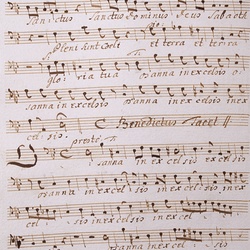 Sanctus Sanctus Dominus Deus Sabaoth
Pleni sunt Coeli et terra et terra
gloria tua osanna in excelsis
osanna in excelsis osanna in excelsis in ex
cel sis. Benedictus Tacet
presto
Osanna in excelsis excelsis
osanna in excelsis in excelsis
in excelsis in excelsis
osanna in excelsis